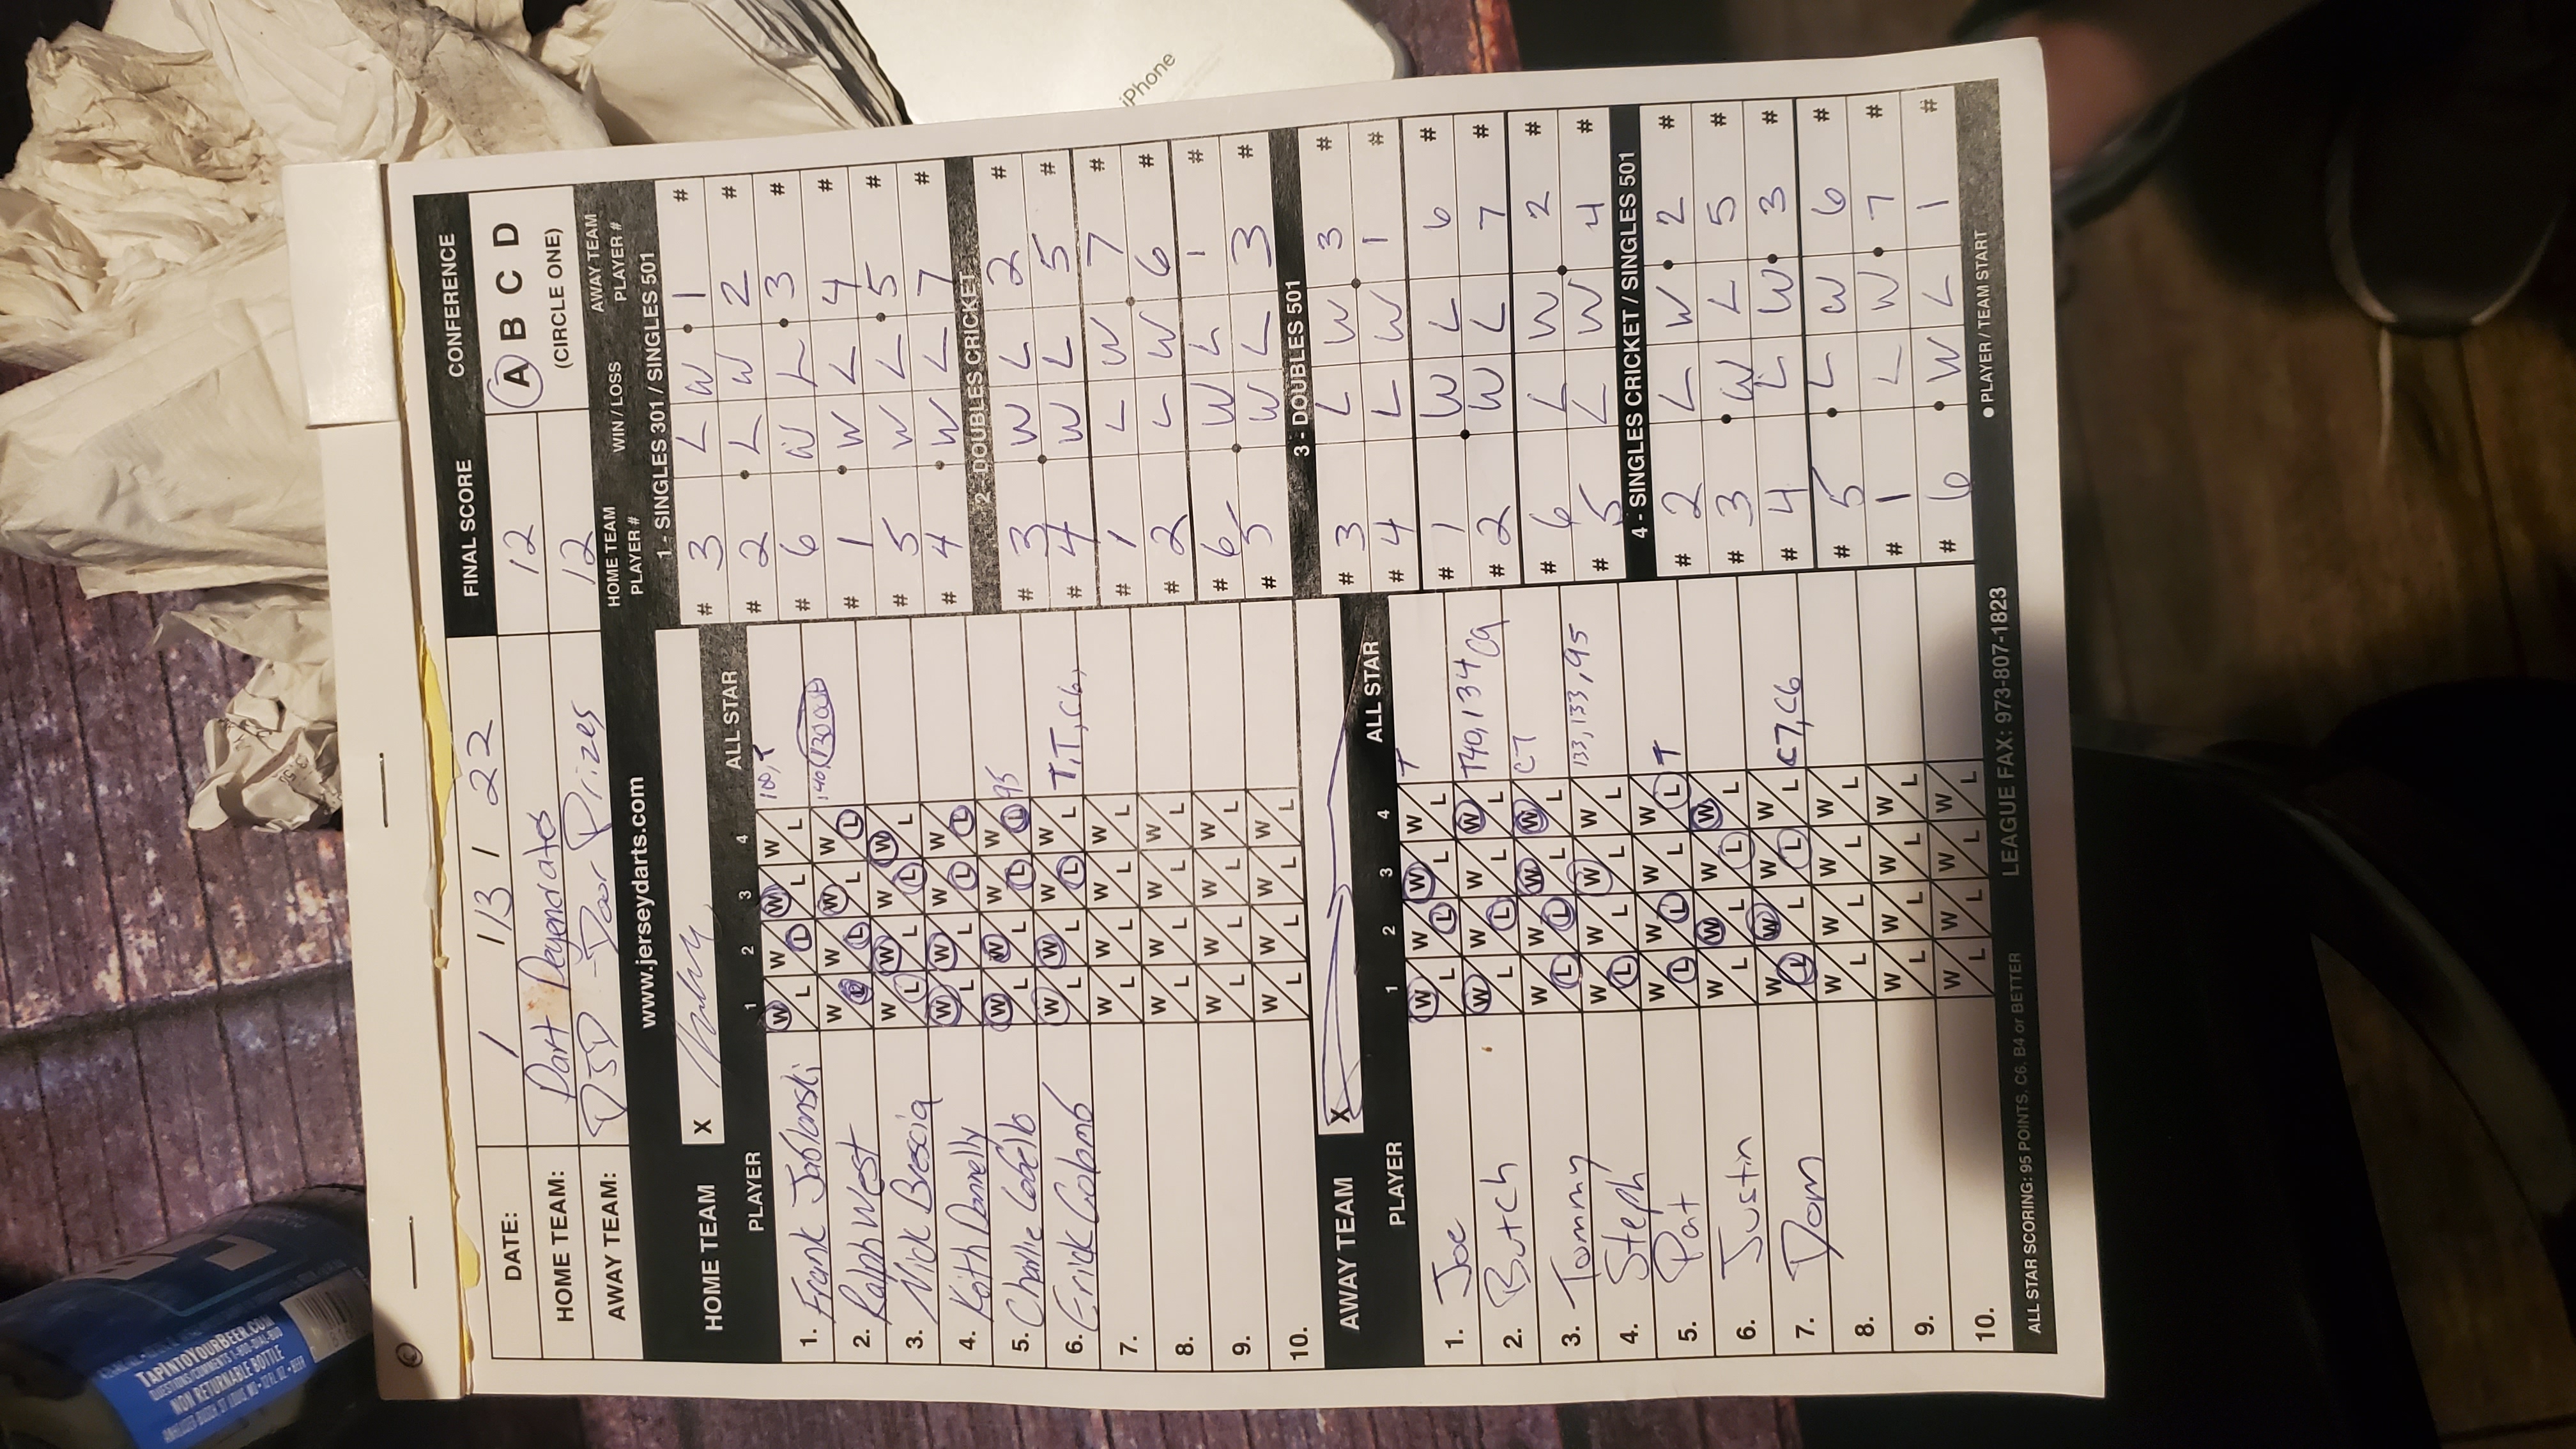 DATE: 1 / 13 / 22
FINAL SCORE
CONFERENCE
HOME TEAM: Dart Degenerates 12
A B C D
AWAY TEAM: DSD - Door Prizes 12
(CIRCLE ONE)
www.jerseydarts.com
HOME TEAM PLAYER #
WIN / LOSS
AWAY TEAM PLAYER #
HOME TEAM X
PLAYER 1 2 3 4 ALL STAR
1. Frank Jablonski W/L W/L W/L W/L 100, T
2. Ralph West W/L W/L W/L W/L 140, 130 out
3. Nick Bescia W/L W/L W/L W/L
4. Keith Donnelly W/L W/L W/L W/L
5. Charlie W/L W/L W/L W/L 95
6. Erick W/L W/L W/L W/L T, T, C6,
7. W/L W/L W/L W/L
8. W/L W/L W/L W/L
9. W/L W/L W/L W/L
10. W/L W/L W/L W/L
AWAY TEAM X
PLAYER 1 2 3 4 ALL STAR
1. Joe W/L W/L W/L W/L T
2. Butch W/L W/L W/L W/L T40, 134 C9
3. Tommy W/L W/L W/L W/L CT
4. Steph W/L W/L W/L W/L 133, 133, 95
5. Pat W/L W/L W/L W/L T
6. Justin W/L W/L W/L W/L
7. Dom W/L W/L W/L W/L C7, C6
8. W/L W/L W/L W/L
9. W/L W/L W/L W/L
10. W/L W/L W/L W/L
1 - SINGLES 301 / SINGLES 501
# 3 L W 1 #
# 2 L W 2 #
# 6 W L 3 #
# 1 W L 4 #
# 5 W L 5 #
# 4 W L 7 #
2 - DOUBLES CRICKET
# 3 W L 2 #
# 4 W L 5 #
# 1 L W 7 #
# 2 L W 6 #
# 6 W L 1 #
# 5 W L 3 #
3 - DOUBLES 501
# 3 L W 3 #
# 4 L W 1 #
# 1 W L 6 #
# 2 W L 7 #
# 6 L W 2 #
# 5 L W 4 #
4 - SINGLES CRICKET / SINGLES 501
# 2 L W 2 #
# 3 W L 5 #
# 4 L W 3 #
# 5 L W 6 #
# 1 L W 7 #
# 6 W L 1 #
● PLAYER / TEAM START
ALL STAR SCORING: 95 POINTS, C6, B4 or BETTER LEAGUE FAX: 973-807-1823
iPhone
TAPINTOYOURBEER.COM
QUESTIONS/COMMENTS 1-800-DIAL-BUD
NON RETURNABLE BOTTLE